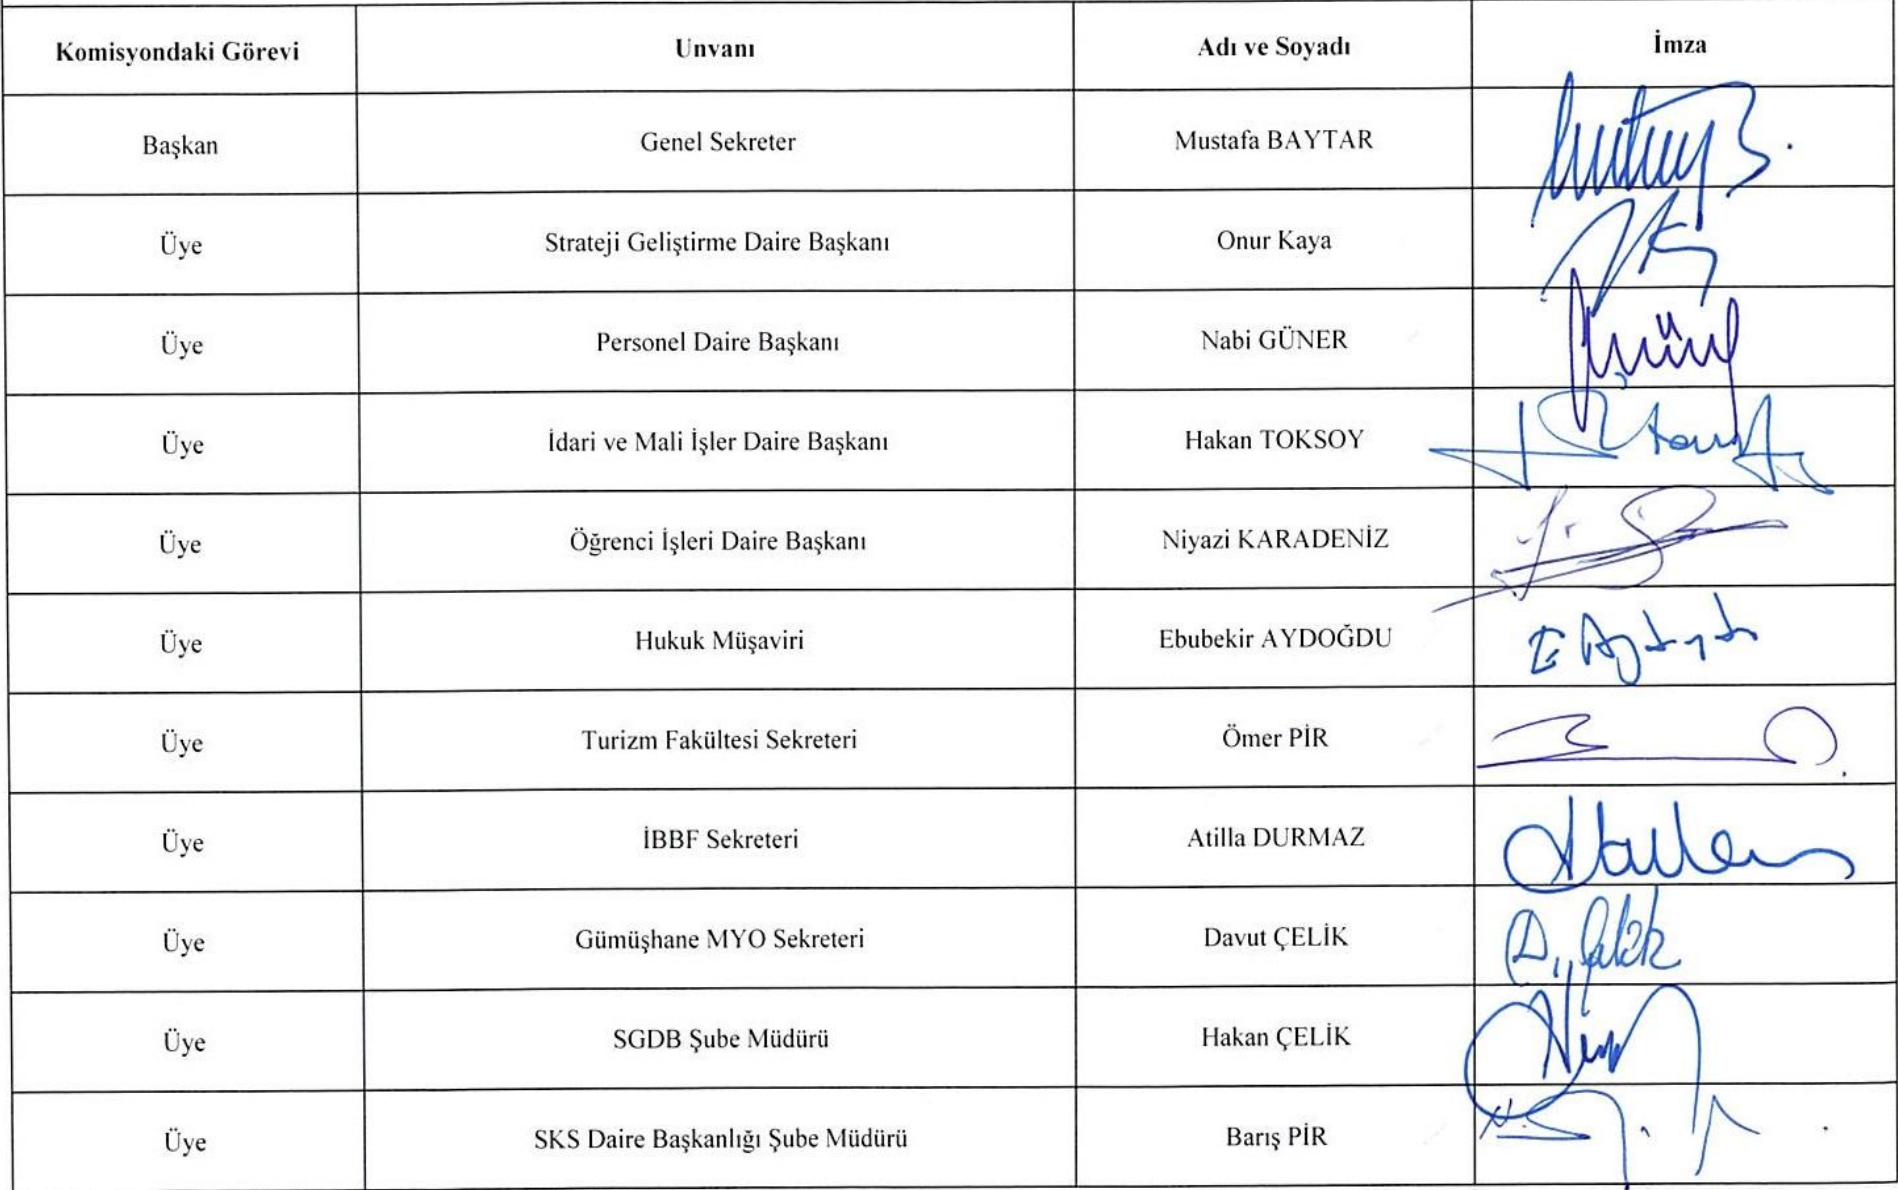 Komisyondaki Görevi Unvanı Adı ve Soyadı İmza
Başkan Genel Sekreter Mustafa BAYTAR
Üye Strateji Geliştirme Daire Başkanı Onur Kaya
Üye Personel Daire Başkanı Nabi GÜNER
Üye İdari ve Mali İşler Daire Başkanı Hakan TOKSOY
Üye Öğrenci İşleri Daire Başkanı Niyazi KARADENİZ
Üye Hukuk Müşaviri Ebubekir AYDOĞDU
Üye Turizm Fakültesi Sekreteri Ömer PİR
Üye İBBF Sekreteri Atilla DURMAZ
Üye Gümüşhane MYO Sekreteri Davut ÇELİK
Üye SGDB Şube Müdürü Hakan ÇELİK
Üye SKS Daire Başkanlığı Şube Müdürü Barış PİR